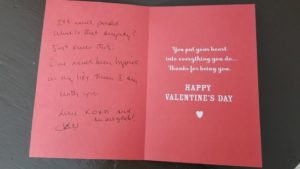 I've never
what is that
Just know this:
I've never been happier
in my life than I am
with you
Love XOXO and
You put your heart
into everything you do...
Thanks for being you.
HAPPY
VALENTINE'S DAY